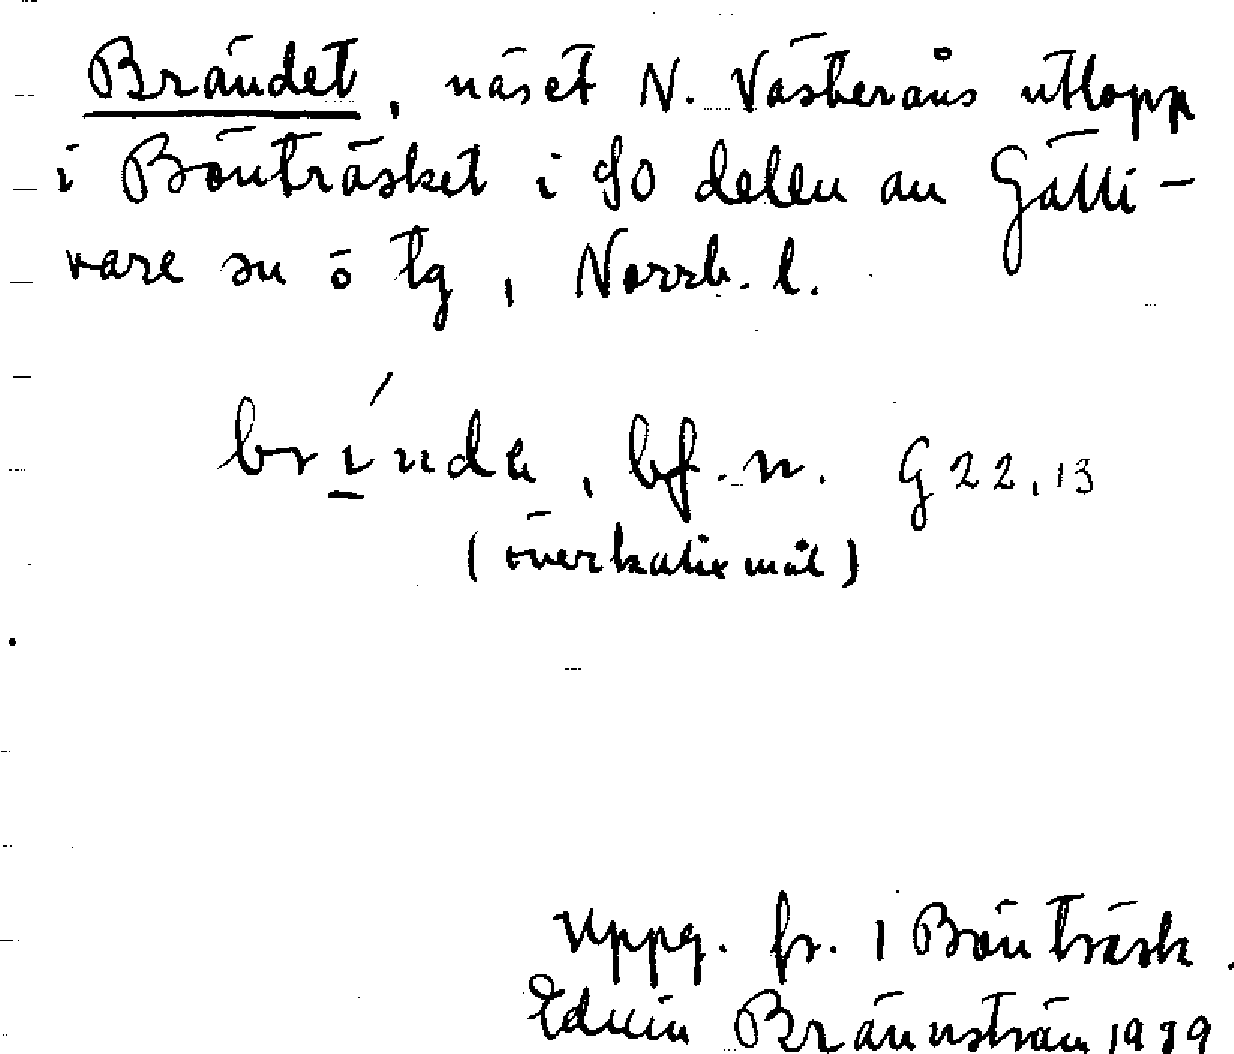 Brändet, näset N. Västeråns utlopp
i Bönträsket i SO delen av Gälli-
vare sn o tg, Norrb. l.
brı̱́nda, bf. n. G 22,13
(överkalixmål)
Uppg. fr. 1 Bönträsk.
Edvin Brännström 1939